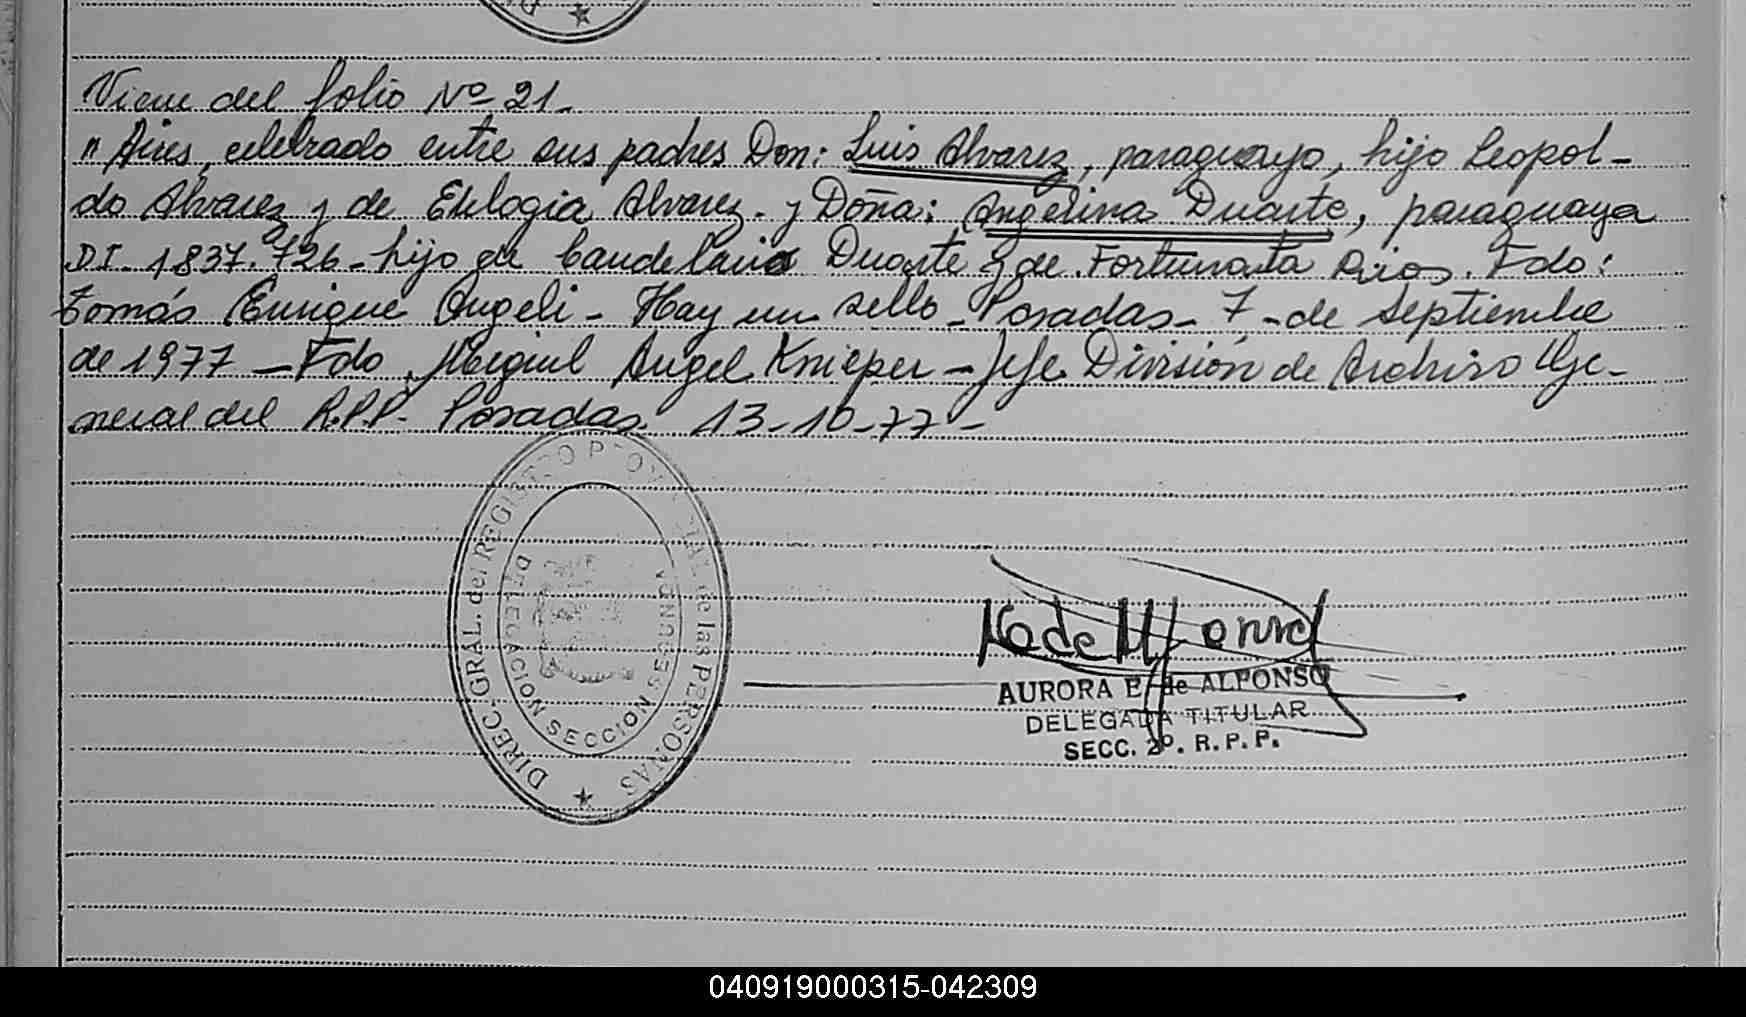 Viene del folio Nº 21.
" Aires, celebrado entre sus padres Don: Luis Alvarez, paraguayo, hijo Leopol-
do Alvarez y de Eulogia Alvarez. y Doña: Angelina Duarte, paraguaya
DI. 1837.726 - hijo de Candelaria Duarte y de Fortunata Rios. Fdo:
Tomás Enrique Angeli - Hay un sello - Posadas - 7 - de septiembre
de 1977 - Fdo Miguel Angel Knieper - Jefe División de Archivo Ge-
neral del R.P.P. Posadas 13-10-77 -
DIREC. GRAL. del REGISTRO PROVINCIAL de las PERSONAS
DELEGACION SECCION SEGUNDA
AURORA E. de ALFONSO
DELEGADA TITULAR
SECC. 2º. R. P. P.
040919000315-042309